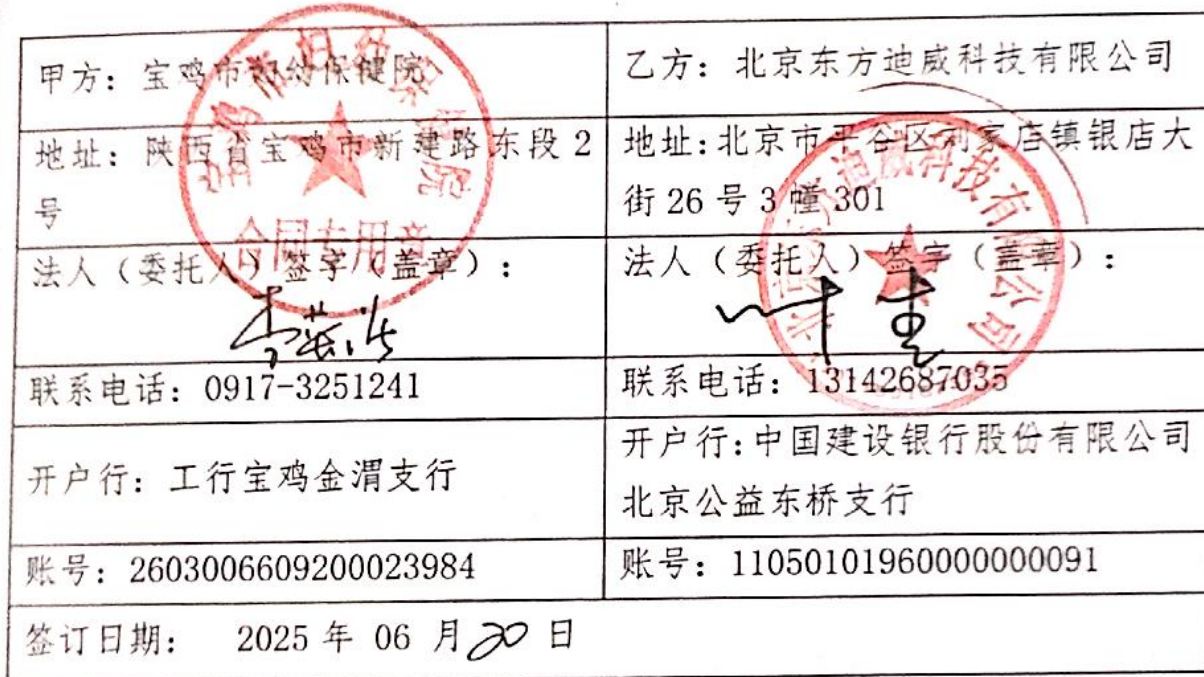 甲方：宝鸡市妇幼保健院
乙方：北京东方迪威科技有限公司
地址：陕西省宝鸡市新建路东段 2
号
地址：北京市平谷区刘家店镇银店大
街 26 号 3 幢 301
法人（委托人）签字（盖章）：
法人（委托人）签字（盖章）：
联系电话：0917-3251241
联系电话：13142687035
开户行：工行宝鸡金渭支行
开户行：中国建设银行股份有限公司
北京公益东桥支行
账号：2603006609200023984
账号：11050101960000000091
签订日期： 2025 年 06 月 20 日
宝鸡市妇幼保健院
合同专用章
北京东方迪威科技有限公司